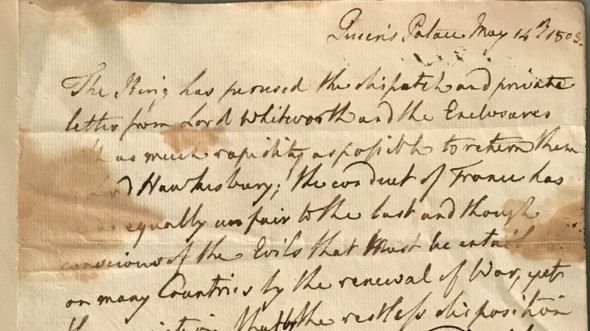 Queen's Palace May 14th 1803.
The King has perused the dispatch and private
letter from Lord Whitworth and the Enclosures
as much rapidity as possible to return them
Hawkesbury; the conduct of France has
equally unfair to the last and though
conscious of the Evils that must be entail
on many Countries by the renewal of War, yet
that the restless disposition